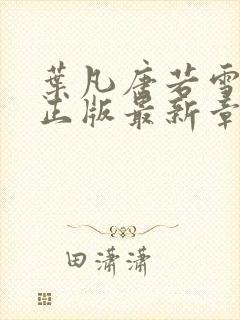 葉凡唐若雪
正版最新章
田潇潇